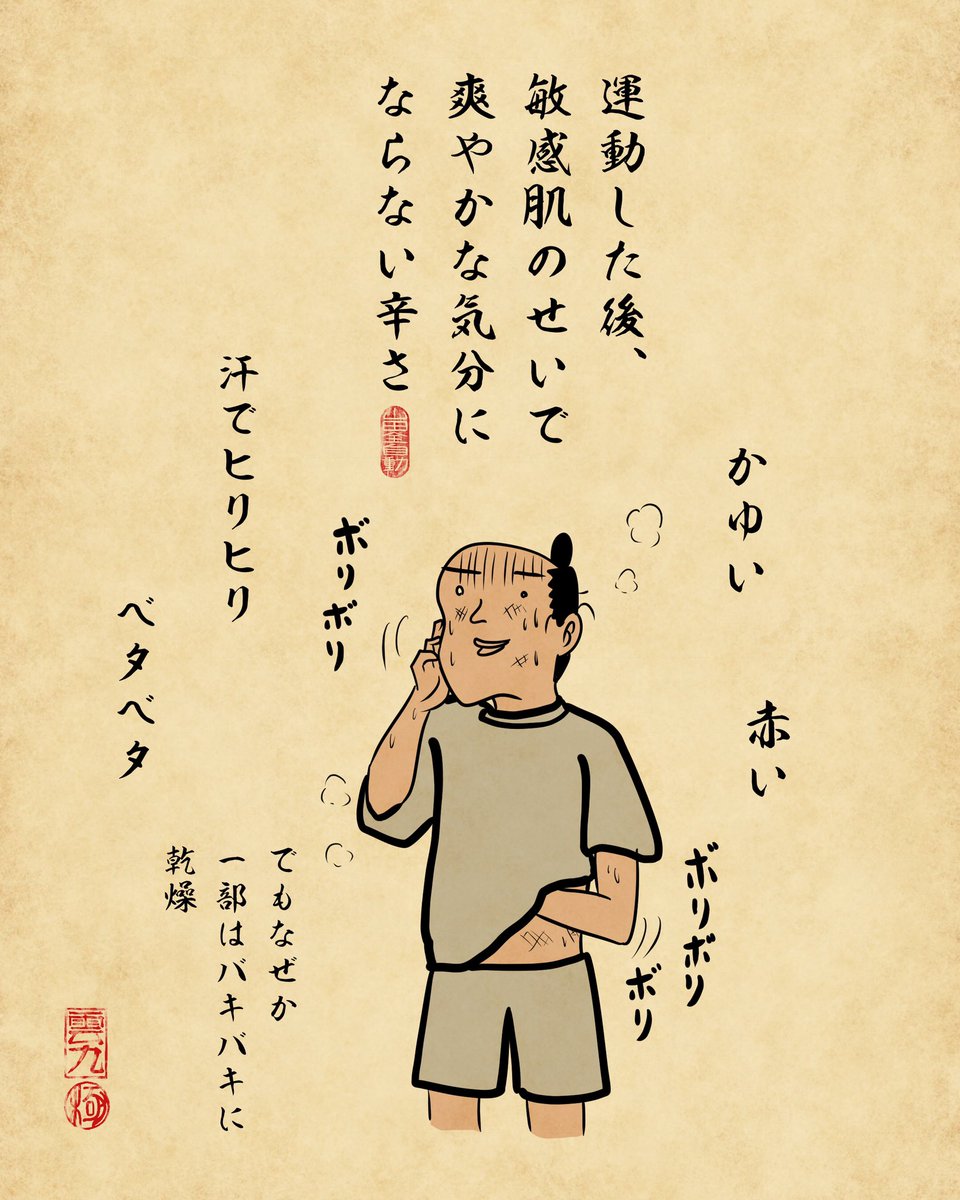 運動した後、
敏感肌のせいで
爽やかな気分に
ならない辛さ
かゆい
赤い
ボリボリ
ボリ
ボリボリ
汗でヒリヒリ
ベタベタ
でもなぜか
一部はバキバキに
乾燥